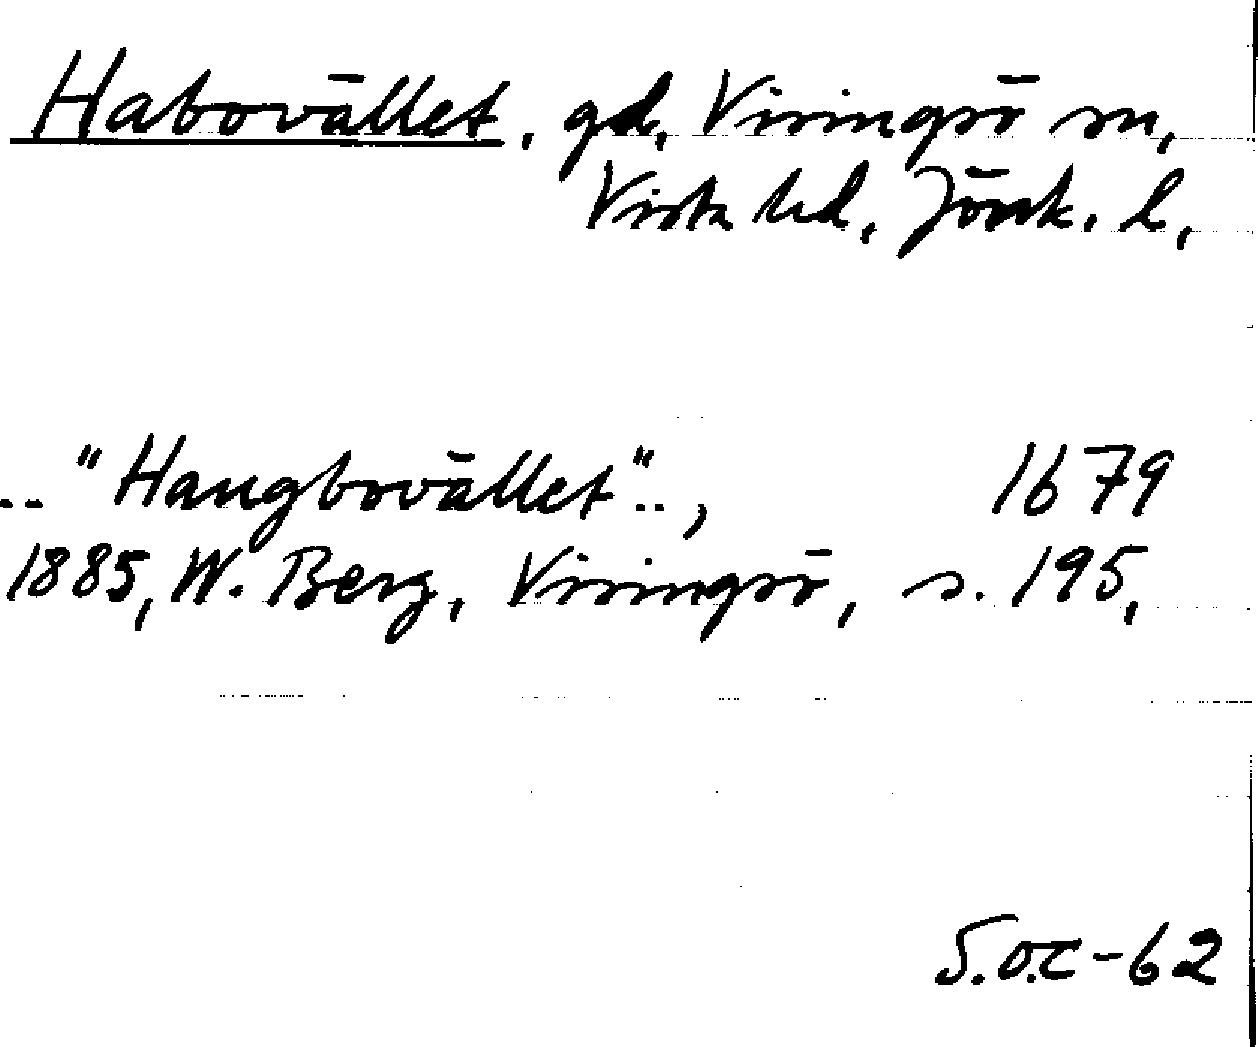 Habovället, gd, Visingsö sn,
Vista hd, Jönk. l,
.. "Haugbovället"..,  1679
1885, W. Berg, Visingsö, s. 195,
S.O.C-62